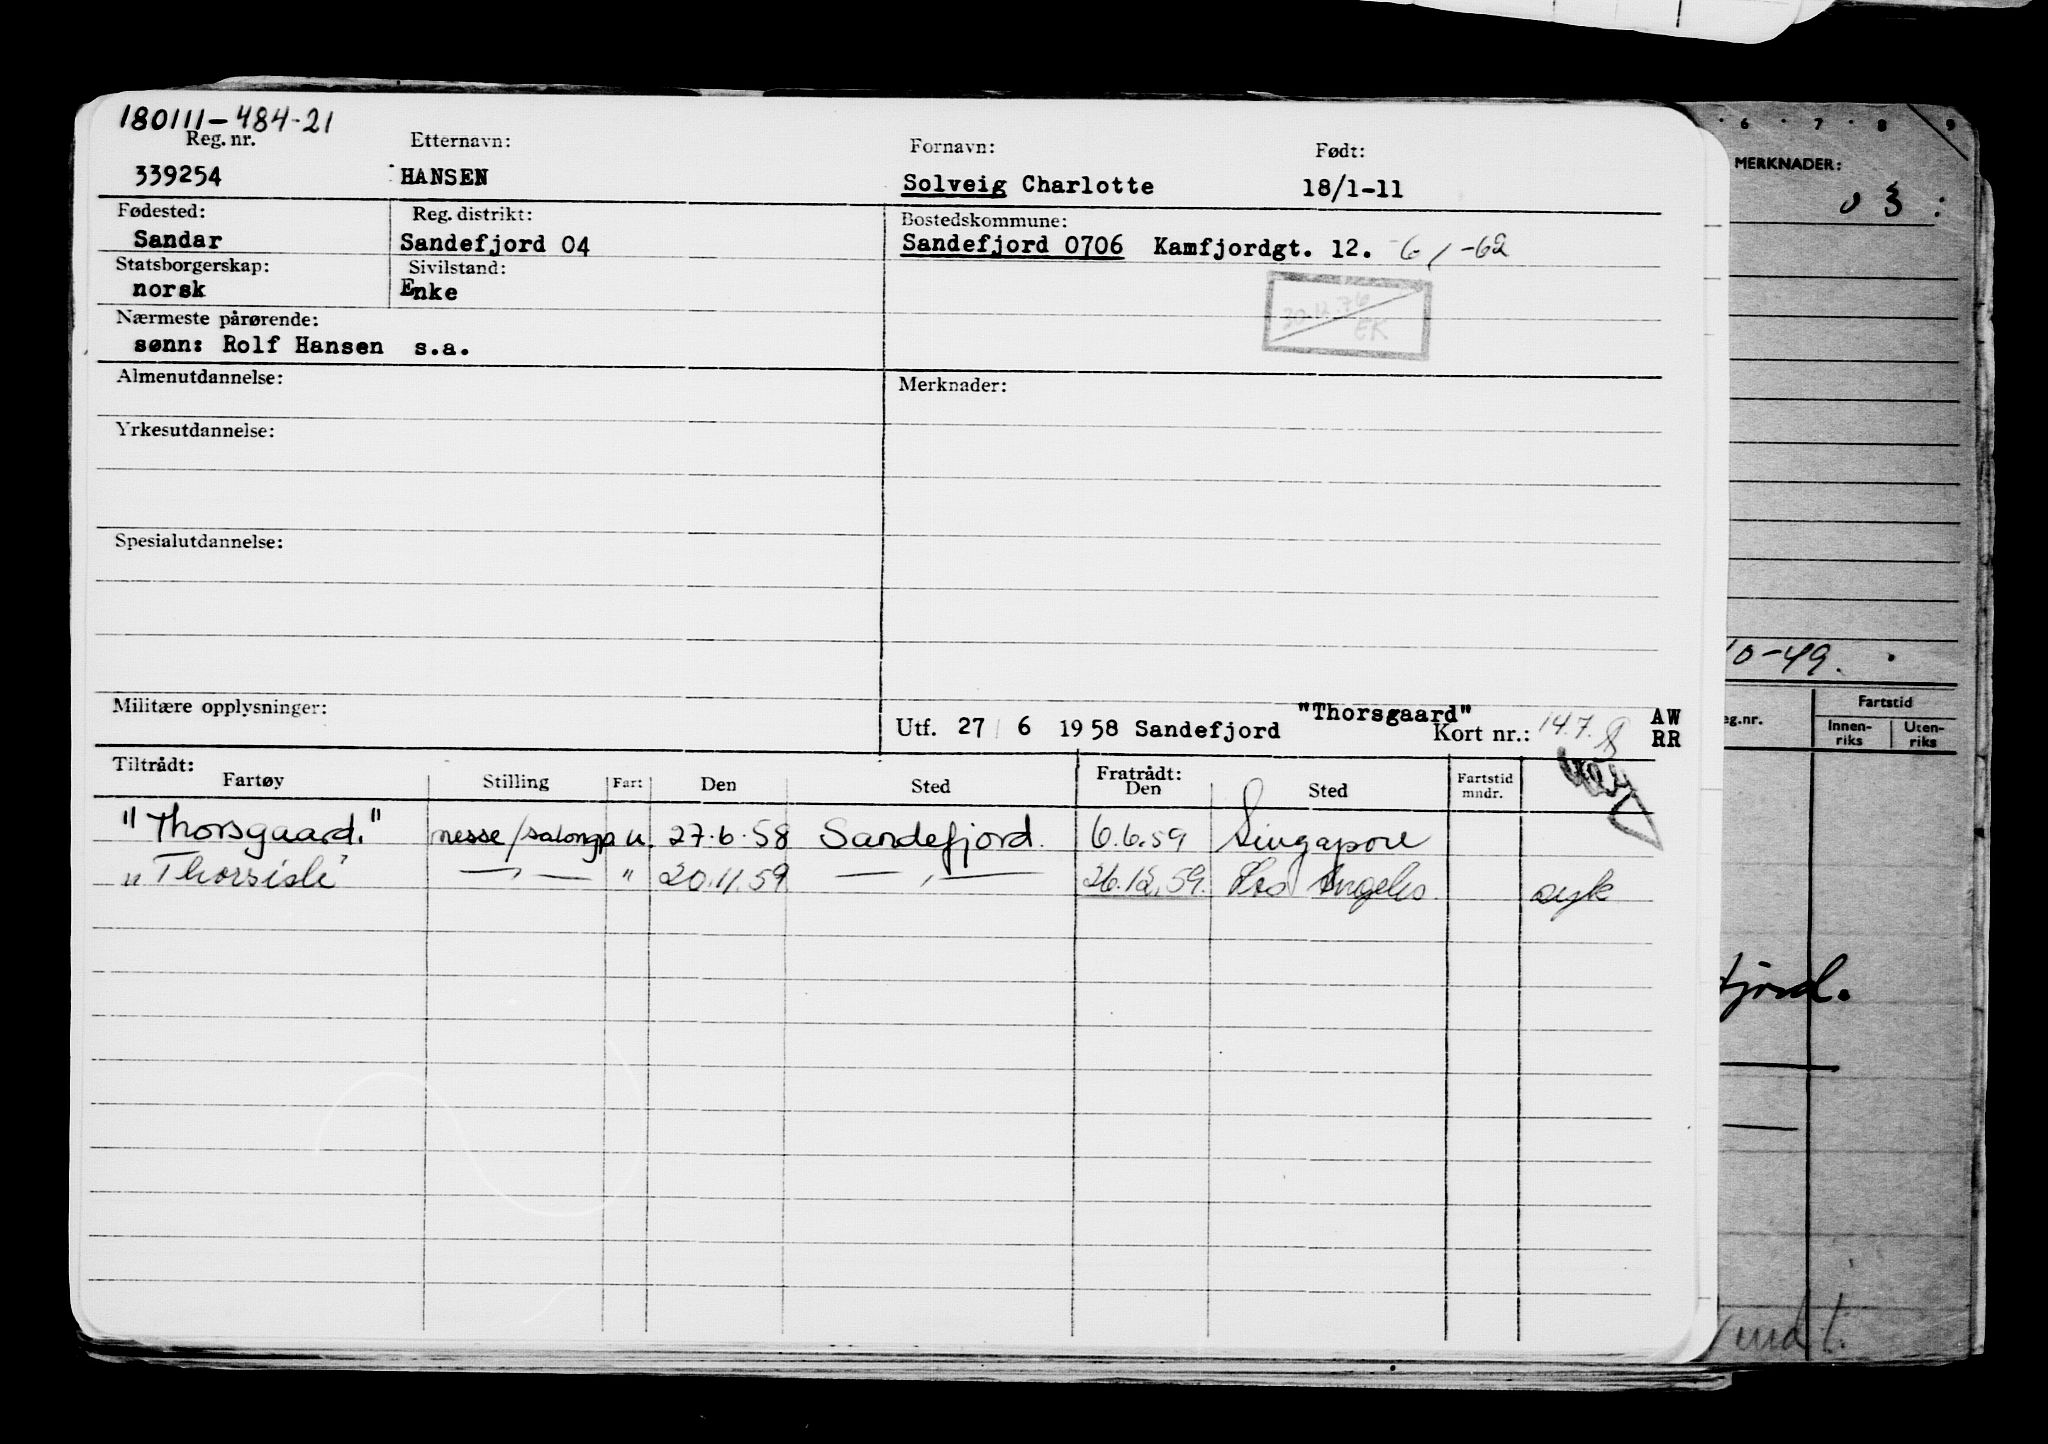 180111-484-21
Reg. nr. Etternavn: Fornavn: Født:
339254 HANSEN Solveig Charlotte 18/1-11
Fødested: Reg. distrikt: Bostedskommune:
Sandar Sandefjord 04 Sandefjord 0706 Kamfjordgt. 12. 6/ -62
Statsborgerskap: Sivilstand:
norsk Enke
EK
Nærmeste pårørende:
sønn: Rolf Hansen s.a.
Almenutdannelse: Merknader:
Yrkesutdannelse:
Spesialutdannelse:
Militære opplysninger: Utf. 27/ 6 1958 Sandefjord "Thorsgaard" Kort nr.: 14.7. AW
RR
Tiltrådt: Fratrådt:
Fartøy Stilling Fart Den Sted Den Sted Fartstid mndr.
"Thorsgaard." messe/salongp u. 27.6.58 Sandefjord. 6.6.59 Singapore
"Thorsisle" — , — " 20.11.59 — , — 26.12.59. Los Angeles syk
6 7 8 9
MERKNADER:
03:
10-49.
eg.nr. Fartstid
Innenriks Utenriks
fjord.